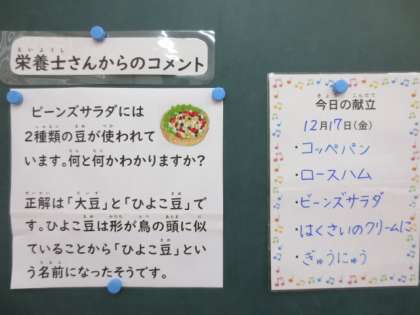 栄養士さんからのコメント
ビーンズサラダには
2種類の豆が使われて
います。何と何かわかりますか?
正解は「大豆」と「ひよこ豆」で
す。ひよこ豆は形が鳥の頭に似
ていることから「ひよこ豆」とい
う名前になったそうです。
今日の献立
12月17日(金)
・コッペパン
・ロースハム
・ビーンズサラダ
・はくさいのクリームに
・ぎゅうにゅう